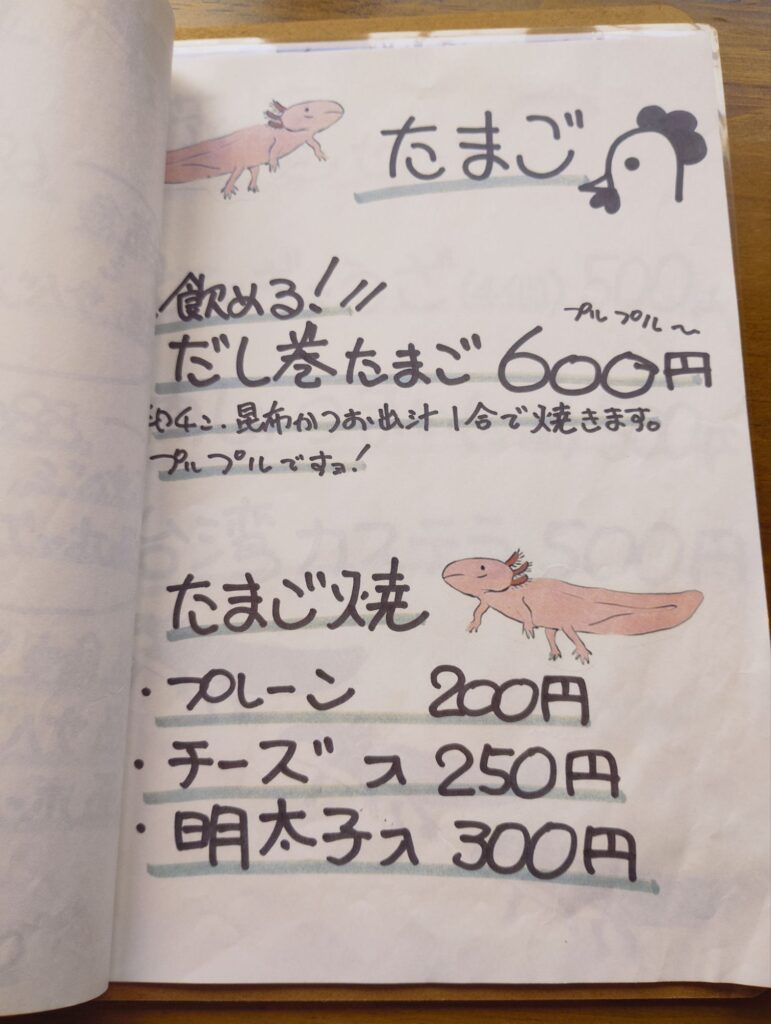 たまご
飲める!!!
プルプル〜
だし巻たまご 600円
4コ、昆布かつお出汁1合で焼きます。
プルプルですョ!
たまご焼
・プレーン 200円
・チーズ入 250円
・明太子入 300円